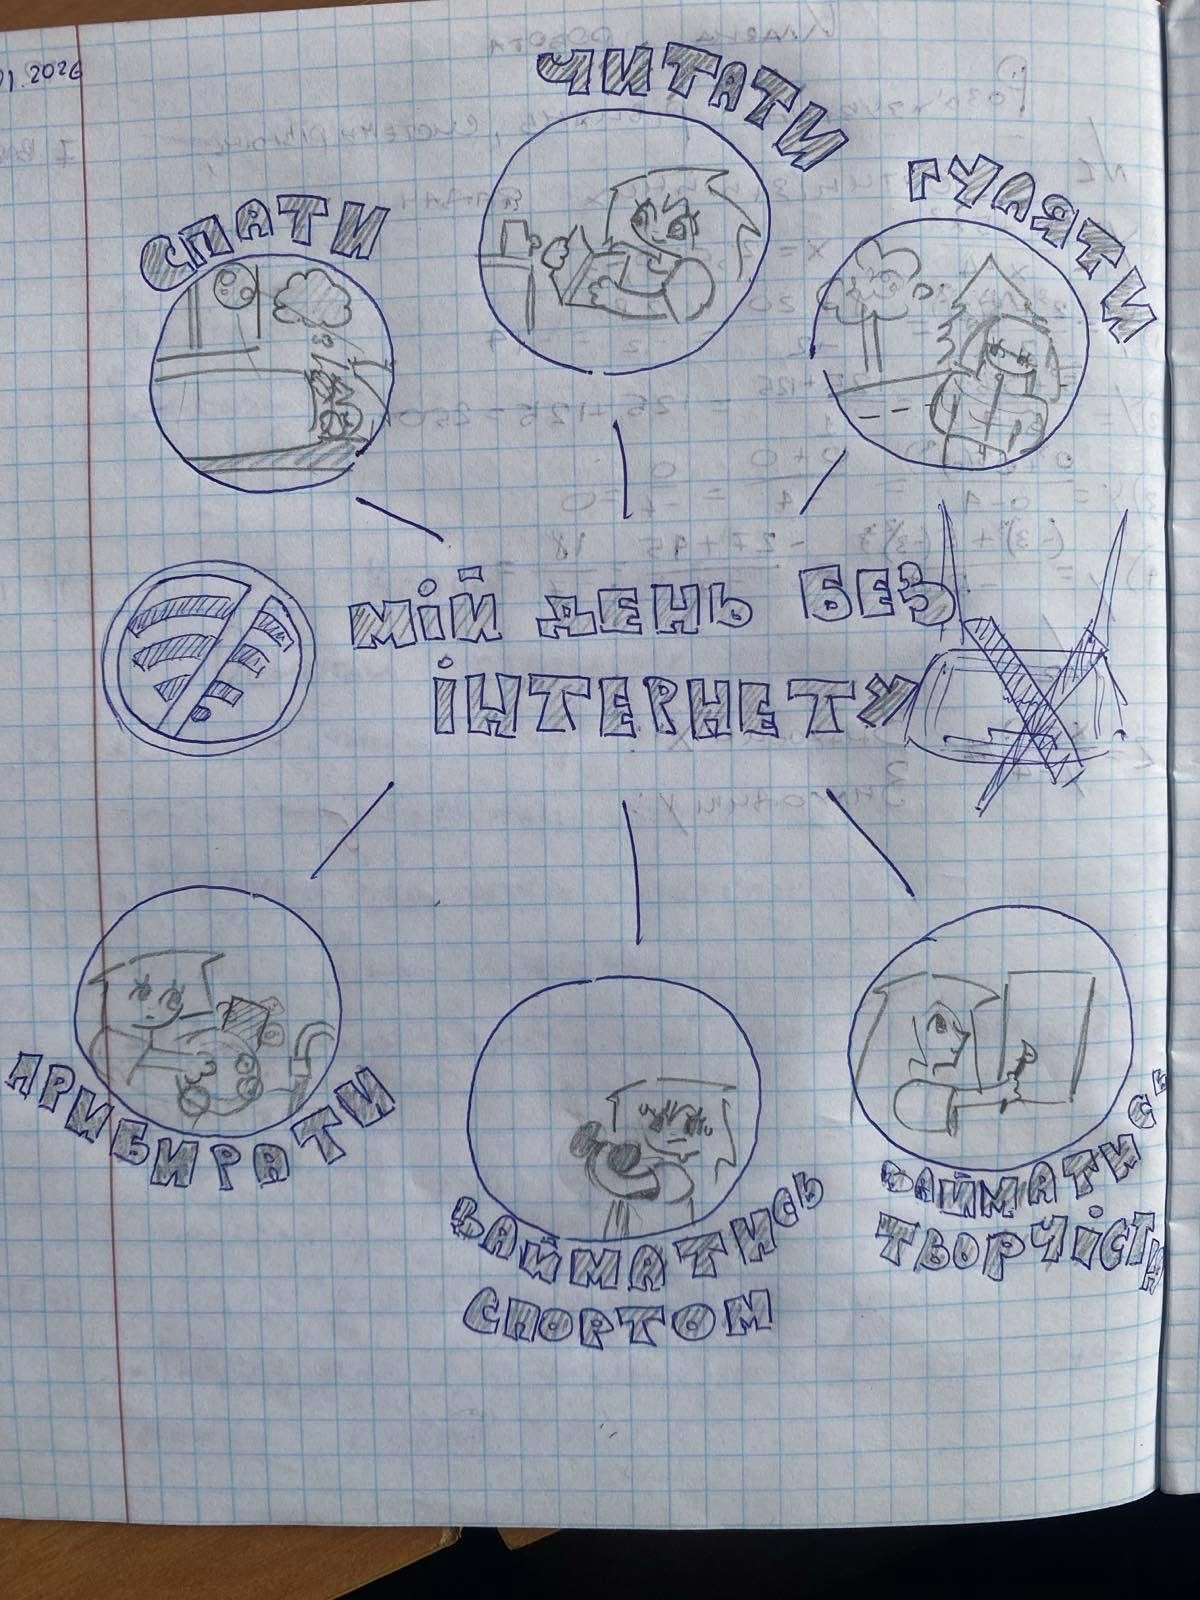 01.2026
ЧИТАТИ
ГУЛЯТИ
СПАТИ
МІЙ ДЕНЬ БЕЗ
ІНТЕРНЕТУ
ПРИБИРАТИ
ЗАЙМАТИСЬ
СПОРТОМ
ЗАЙМАТИСЬ
ТВОРЧІСТЮ